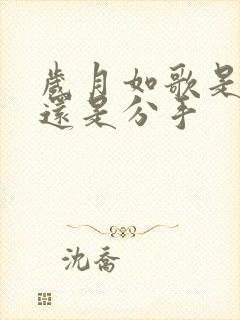 歲月如歌是
還是分手
沈喬